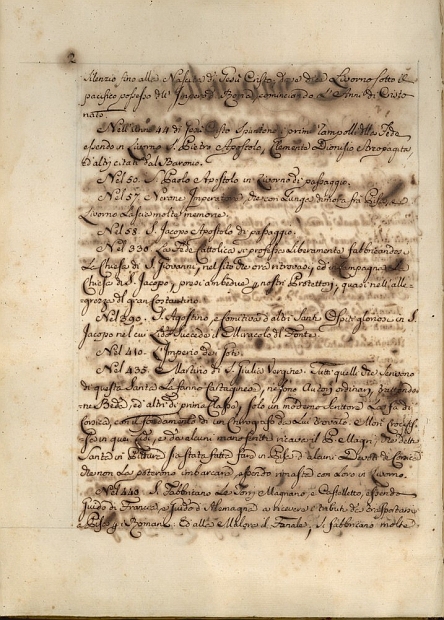 2
silenzio fino alla Nascita di Gesù Cristo, dove dice Livorno sotto il
pacifico possesso dell' Imperio Romano, cominciando l'Anno di Cristo
nato.
Nell'anno 44 di Gesù Cristo Spuntono i primi lampi della Fede
essendo in Livorno S. Pietro Apostolo, Clemente Dionisio Areopagita
ed altri citati dal Baronio.
Nel 50. S. Paolo Apostolo in Livorno di passaggio.
Nel 57. Nerone Imperatore, che con lunga dimora fra Pisa, e
Livorno lasciò molte memorie.
Nel 58. S. Jacopo Apostolo di passaggio.
Nel 330. La Fede Cattolica si professa liberamente fabbricandosi
la Chiesa di S. Giovanni, nel sito che ora ritrovasi, ed in Campagna la
Chiesa di S. Jacopo, presi ambedue p nostri Protettori, quasi nell'alle-
grezze del gran Costantino.
Nel 390. S. Agostino, e comitiva d'altri Santi Ospiti gloriosi in S.
Jacopo nel cui lido succede il Miracolo del Fonte.
Nel 410. L'Imperio dei Goti.
Nel 435. Martirio di S. Giulia Vergine. Tutti quelli che scrivono
di questa Santa la fanno Cartaginese, ne sono Autori ordinari,
Beda, ed altri di prima Classe, solo un moderno Scrittore la fa di
Corsica, con il fondamento di un Chirografo da lui trovato.
in que' lidi, e da alcuni manoscritti ricavò il P. Magri, che detta
Santa in Pittura sia stata fatta fare in Pisa da alcuni Devoti di Corsica
che non la poterono imbarcare, essendo rimasta con loro in Livorno.
Nel 440. Si Fabbricano le Torri Magnano, e Castelletto, essendo
Guido di Francia, e Guido d'Alemagna a ricevere i tributi
Pisa p i Romani. Ed alla il Fanale, si fabbricano molte